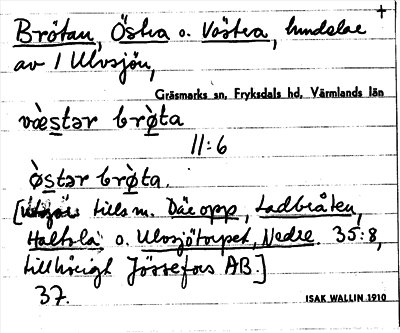 +
Brötan, Östra o. Västra, hundslae
av 1 Ulvsjön,
Gräsmarks sn, Fryksdals hd, Värmlands län
væ̀stər brø̀ta
11:6
ø̀stər brø̀ta.
[Utgör tills m. Däropp, Ladbråten,
Haltsla o. Ulvsjötorpet, Nedre. 35:8,
tillhörigt Jössefors AB.]
37.
ISAK WALLIN 1910